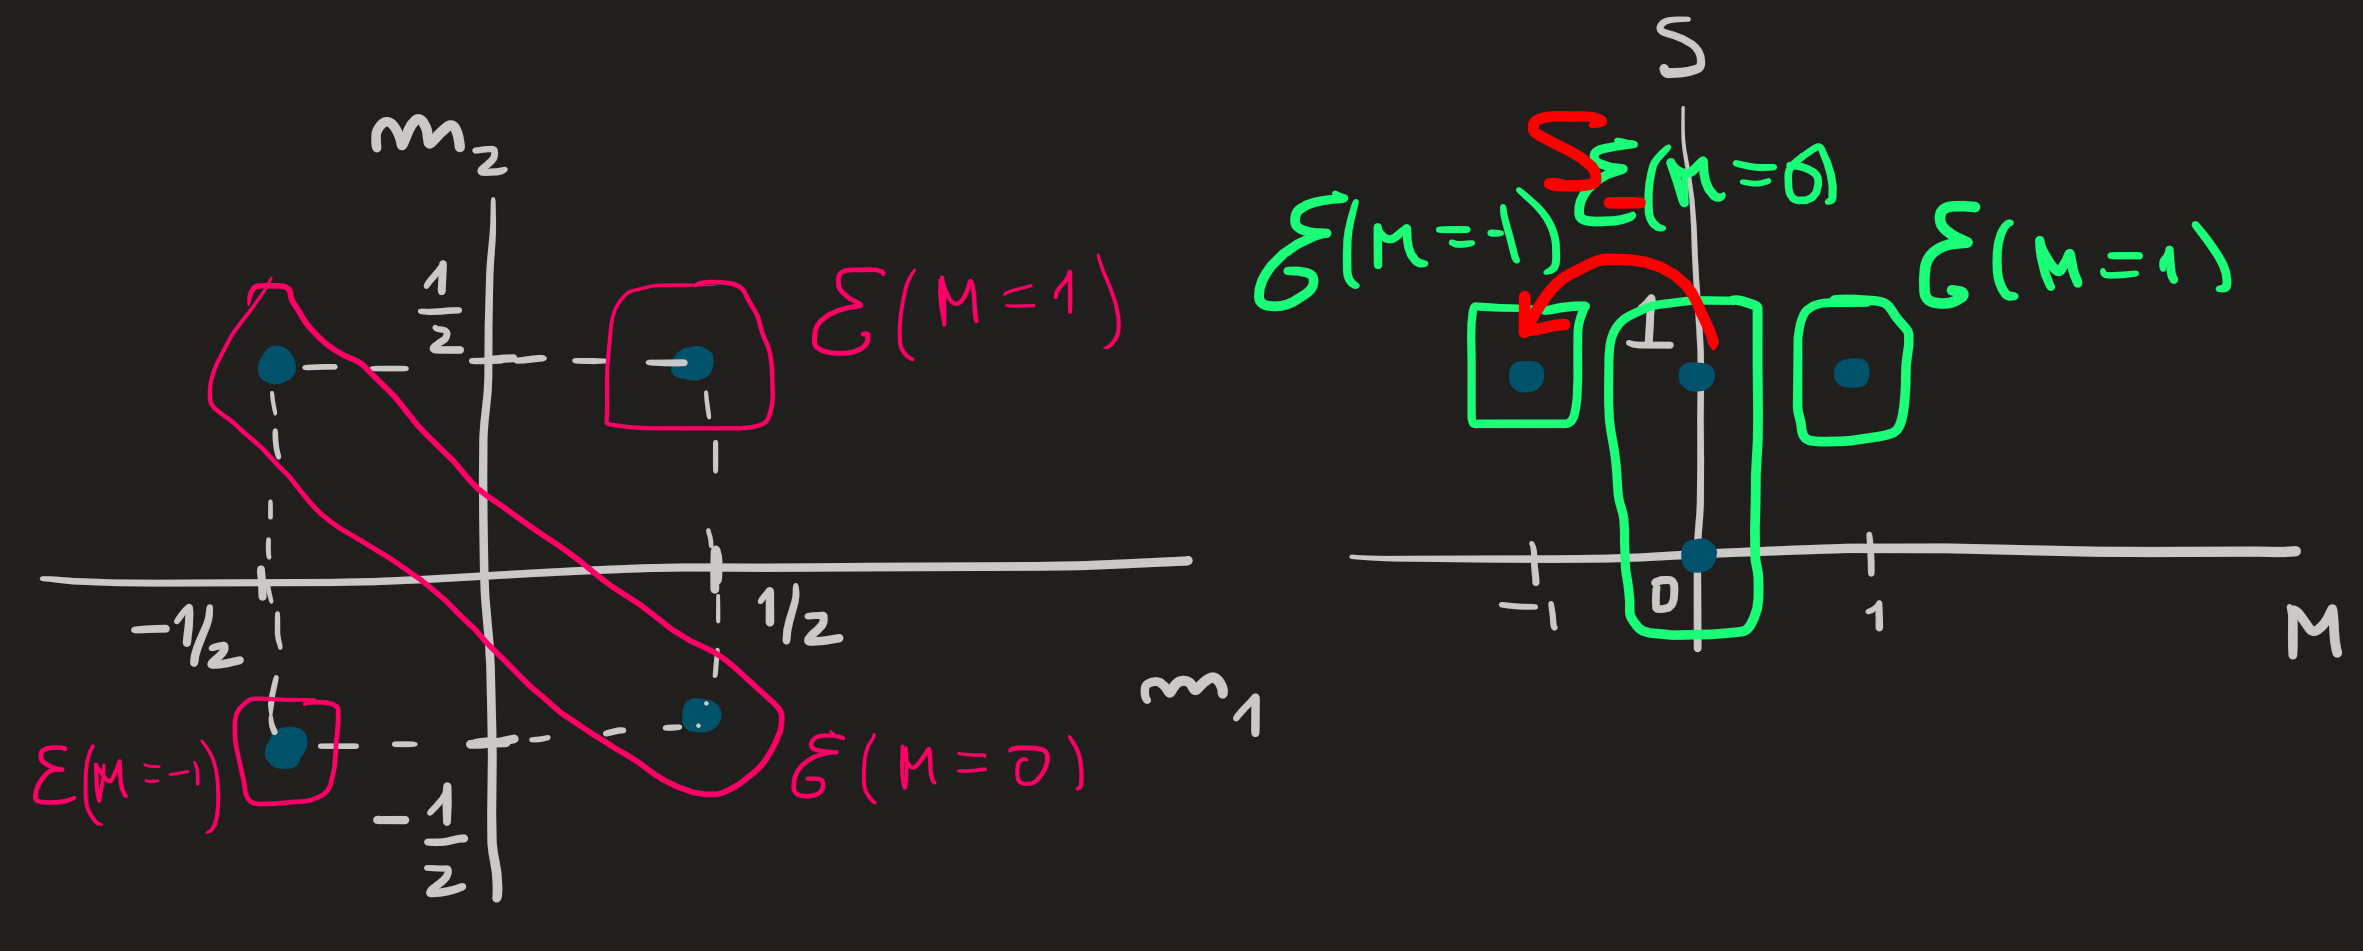 m₂
1/2
ℰ(M=1)
-1/2
1/2
m₁
ℰ(M=-1)
ℰ(M=0)
-1/2
S
S₋
ℰ(M=0)
ℰ(M=-1)
ℰ(M=1)
1
0
-1
1
M